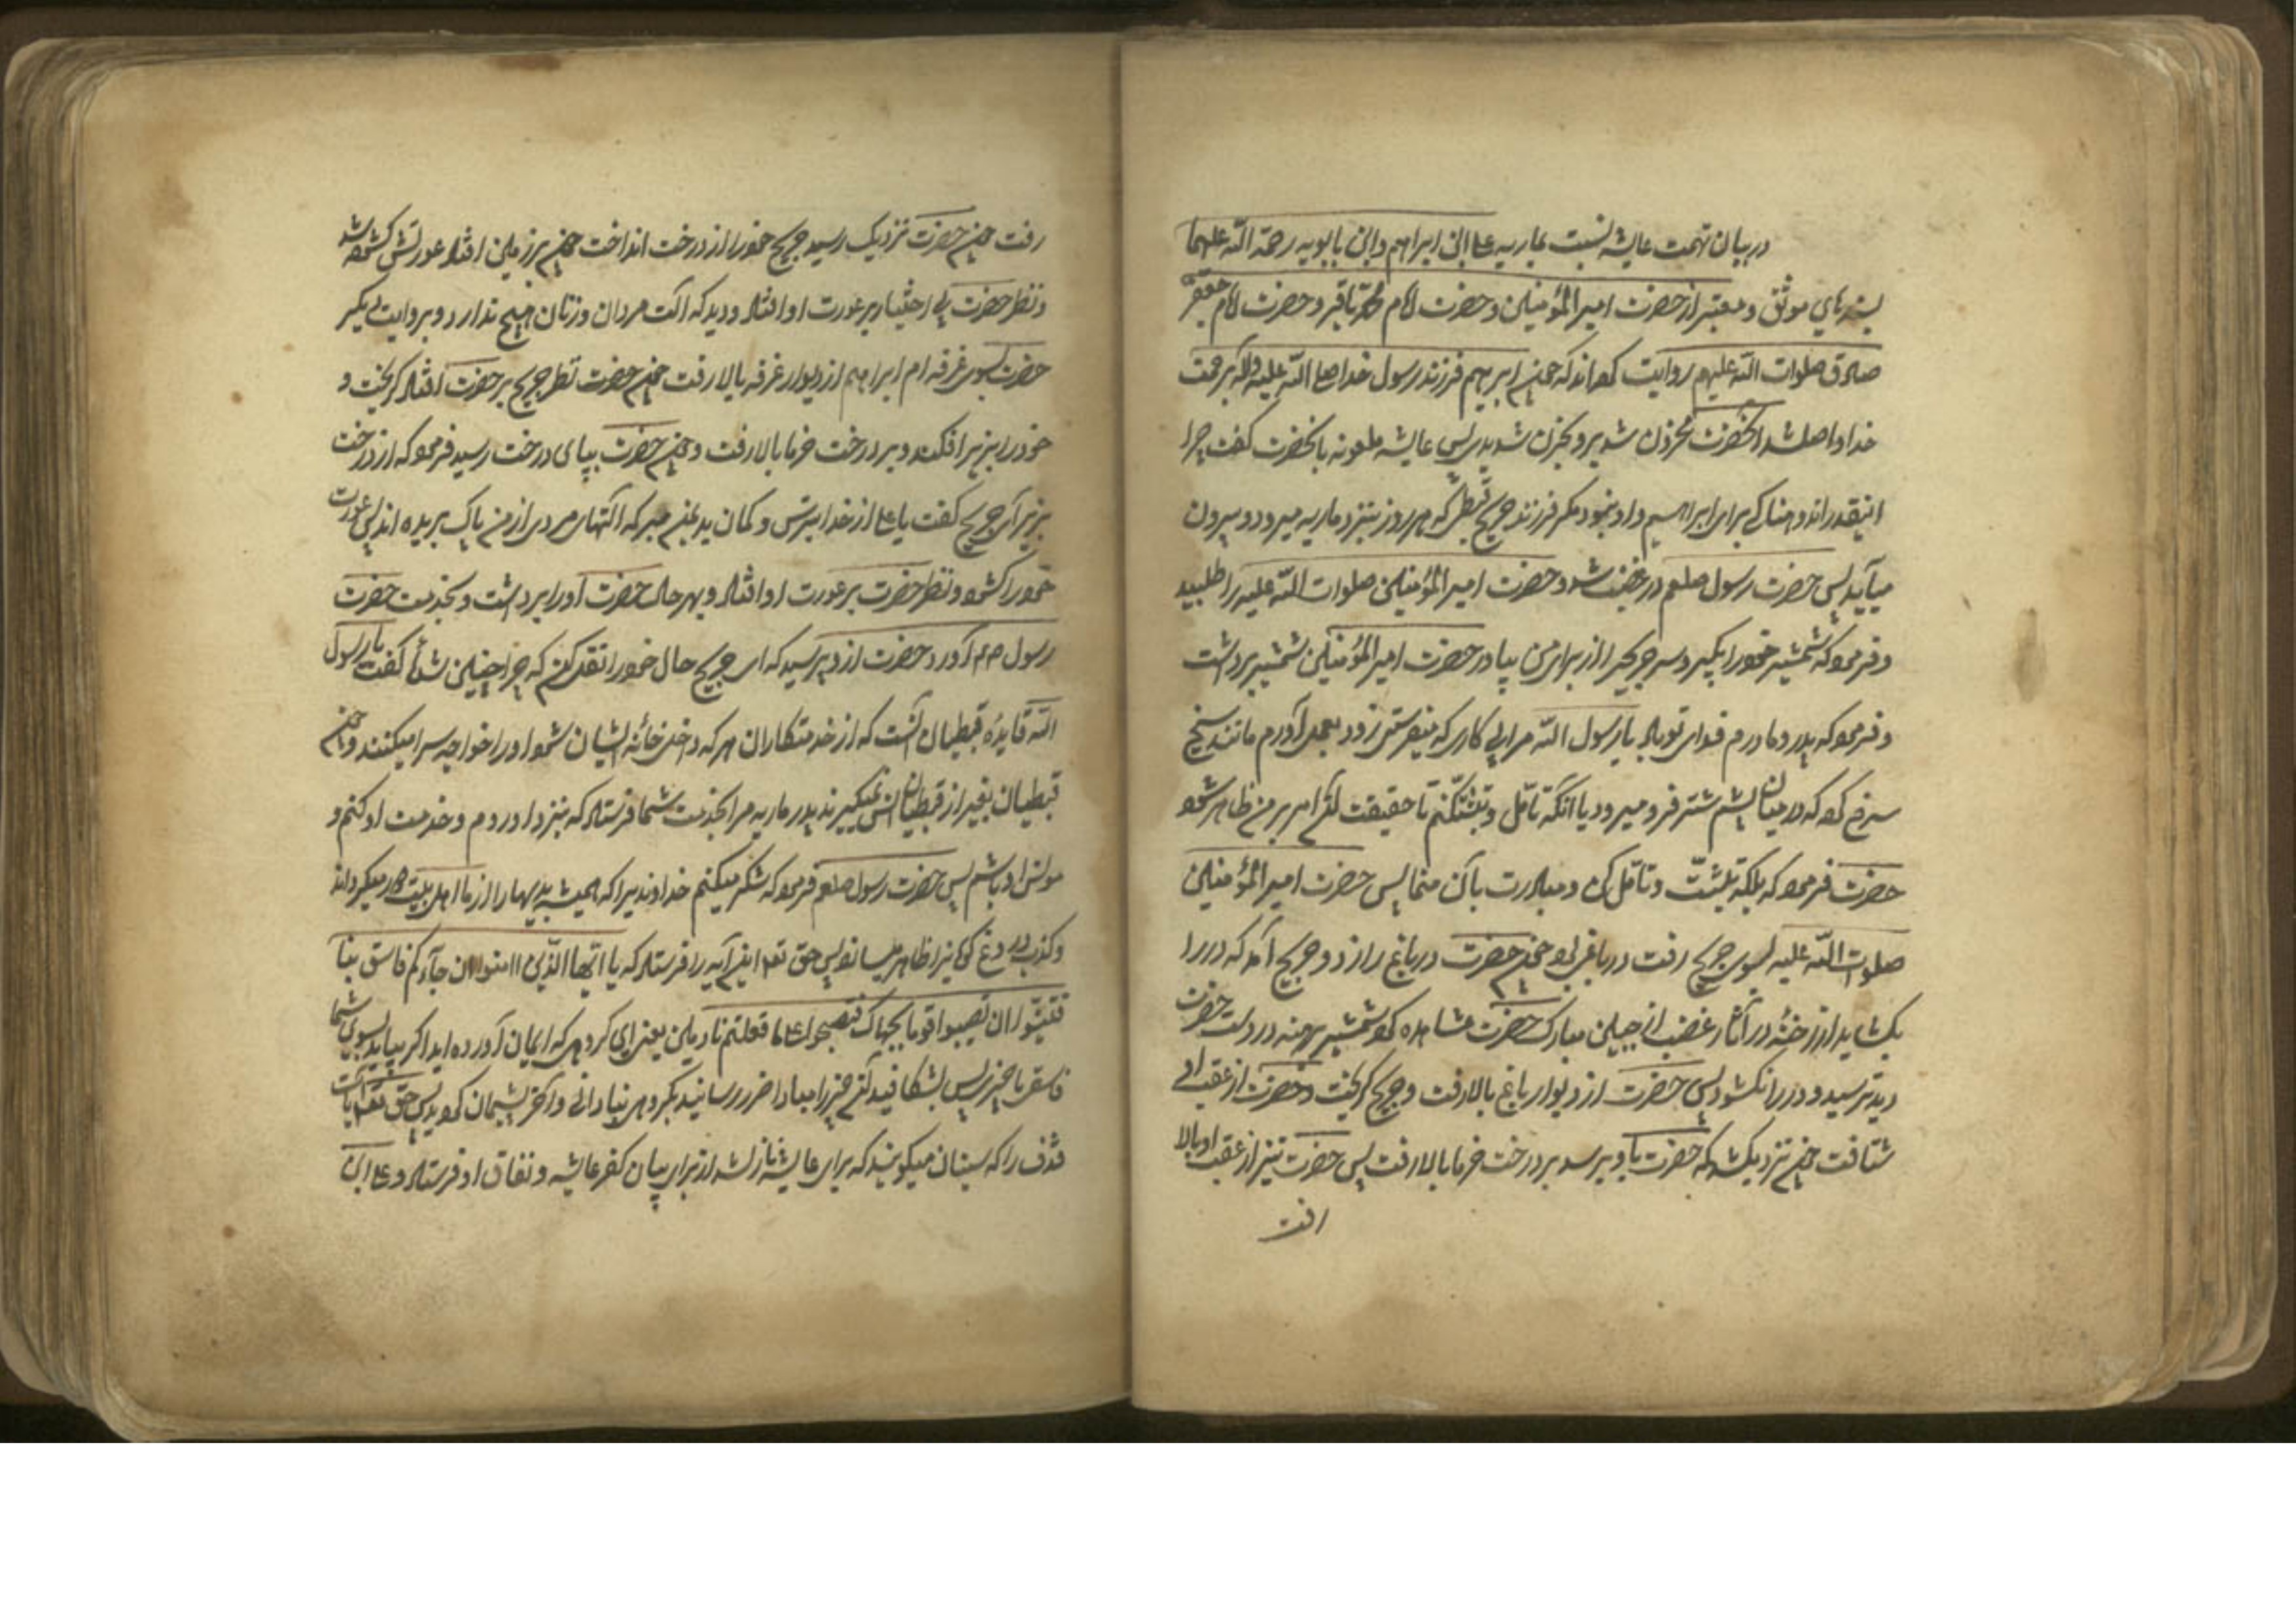 در بیان تهمت عایشه نسبت بماریه علی ابن ابراهیم وابن بابویه رحمة الله علیهما
بسندهای موثق و معتبر از حضرت امیرالمؤمنین و حضرت امام محمد باقر و حضرت امام جعفر
صادق صلوات الله علیهم روایت کرده‌اند که چون ابرهیم فرزند رسول خدا صلی الله علیه وآله برحمت
خدا واصل شد آنحضرت محزون شد بر وی بحزن شدید پس عایشه ملعونه بآنحضرت گفت چرا
اینقدر اندوهناکی برای ابراهیم و او نبود مگر فرزند جریح قبطی که هر روز بنزد ماریه میرود و بیرون
میآید پس حضرت رسول صلعم در غضب شد و حضرت امیرالمؤمنین صلوات الله علیه را طلبید
و فرمود که شمشیر خود را بگیر و سر جریح را از برای من بیاور حضرت امیرالمؤمنین شمشیر برداشت
و فرمود که پدر و مادرم فدای تو باد یا رسول الله مرا پی کاری که میفرستی زود بعمل آورم مانند سیخ
سرخ کرده که در میان پشم شتر فرو میرود یا آنکه تأمل و تثبت کنم تا حقیقت آن امر بر من ظاهر شود
حضرت فرمود که بلکه تثبت و تأمل کن و مبادرت بآن منما پس حضرت امیرالمؤمنین
صلوات الله علیه بسوی جریح رفت در باغی بود چون حضرت در باغ را زد و جریح آمد که در را
بگشاید از رخنهٔ در آثار غضب از جبین مبارک حضرت مشاهده کرد و شمشیر برهنه در دست حضرت
دید ترسید و در را نگشود پس حضرت از دیوار باغ بالا رفت و جریح گریخت و حضرت از عقب او
شتافت چون نزدیک شد که حضرت باو برسد بر درخت خرما بالا رفت پس حضرت نیز از عقب او بالا
رفت
رفت چون حضرت نزدیک رسید جریح خود را از درخت انداخت چون بر زمین افتاد عورتش گشوده شد
و نظر حضرت بی اختیار بر عورت او افتاد و دید که آلت مردان و زنان هیچ ندارد و بروایت دیگر
حضرت بسوی غرفه ام ابراهیم از دیوار غرفه بالا رفت چون حضرت نظر جریح بر حضرت افتاد گریخت و
خود را بزیر افکند و بر درخت خرما بالا رفت و چون حضرت بپای درخت رسید فرمود که از درخت
بزیر آی جریح گفت یا علی از خدا بترس و گمان بد بمن مبر که آلتهای مردی از من پاک بریده اند پس عورت
خود را گشود و نظر حضرت بر عورت او افتاد و بهر حال حضرت او را برداشت و بخدمت حضرت
رسول ص آورد و حضرت از و پرسید که ای جریح حال خود را نقل کن که چرا چنین شدهٔ گفت یا رسول
الله قاعدهٔ قبطیان آنست که از خدمتکاران هر که داخل خانهٔ ایشان شود او را خواجه سرا میکنند و چون
قبطیان بغیر از قبطیان انس نمیگیرند پدر ماریه مرا بخدمت شما فرستاد که بنزد او روم و خدمت او کنم و
مونس او باشم پس حضرت رسول صلعم فرمود که شکر میکنم خداوندیرا که همیشه بدیها را از ما اهل بیت دور میگرداند
و کذب دروغ گویانرا ظاهر میسازد پس حق تعالی این آیه را فرستاد که یا ایها الذین امنوا ان جآءکم فاسق بنبا
فتبینوا ان تصیبوا قوما بجهالة فتصبحوا علی ما فعلتم نادمین یعنی ای گروهی که ایمان آورده اید اگر بیاید بسوی شما
فاسقی با خبری پس بشکافید آن خبر را مبادا ضرر رسانید بگروهی بنادانی و آخر پشیمان گردید پس حق تعالی آیات
قذف را که سنیان میگویند که برای عایشه نازل شد از برای بیان کفر عایشه و نفاق او فرستاد و علی ابن